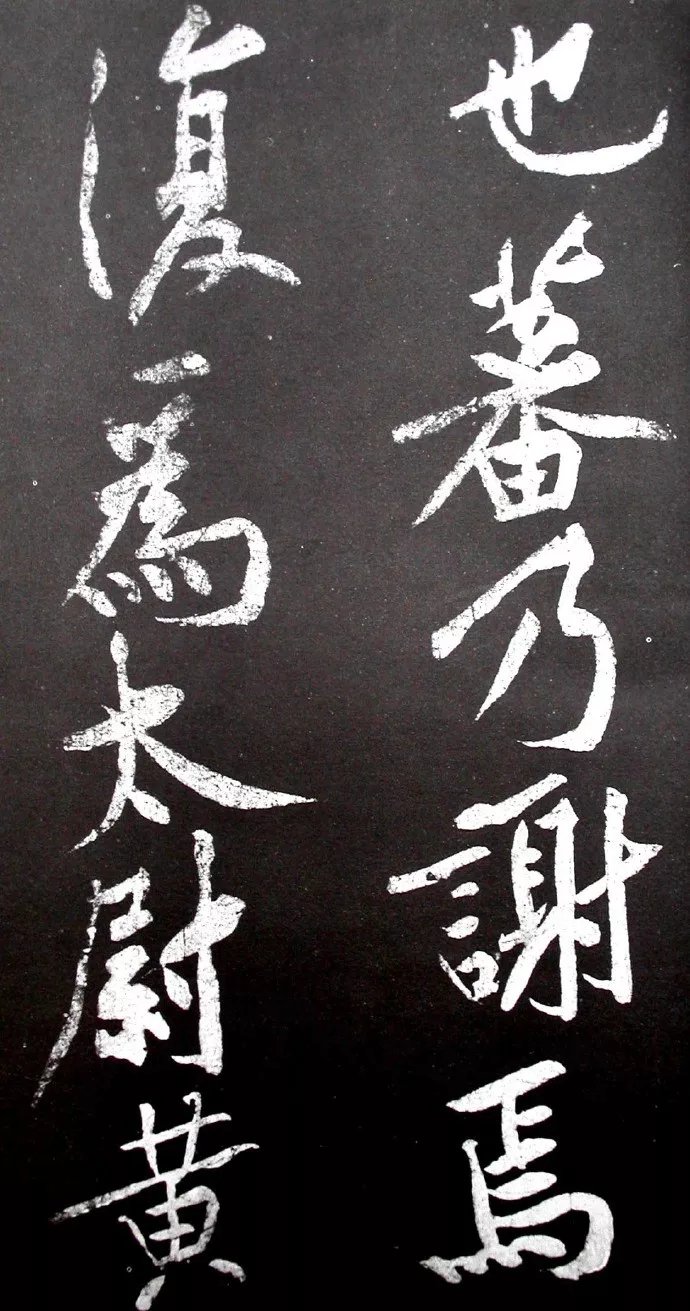 也蕃乃謝焉
復為太尉黃